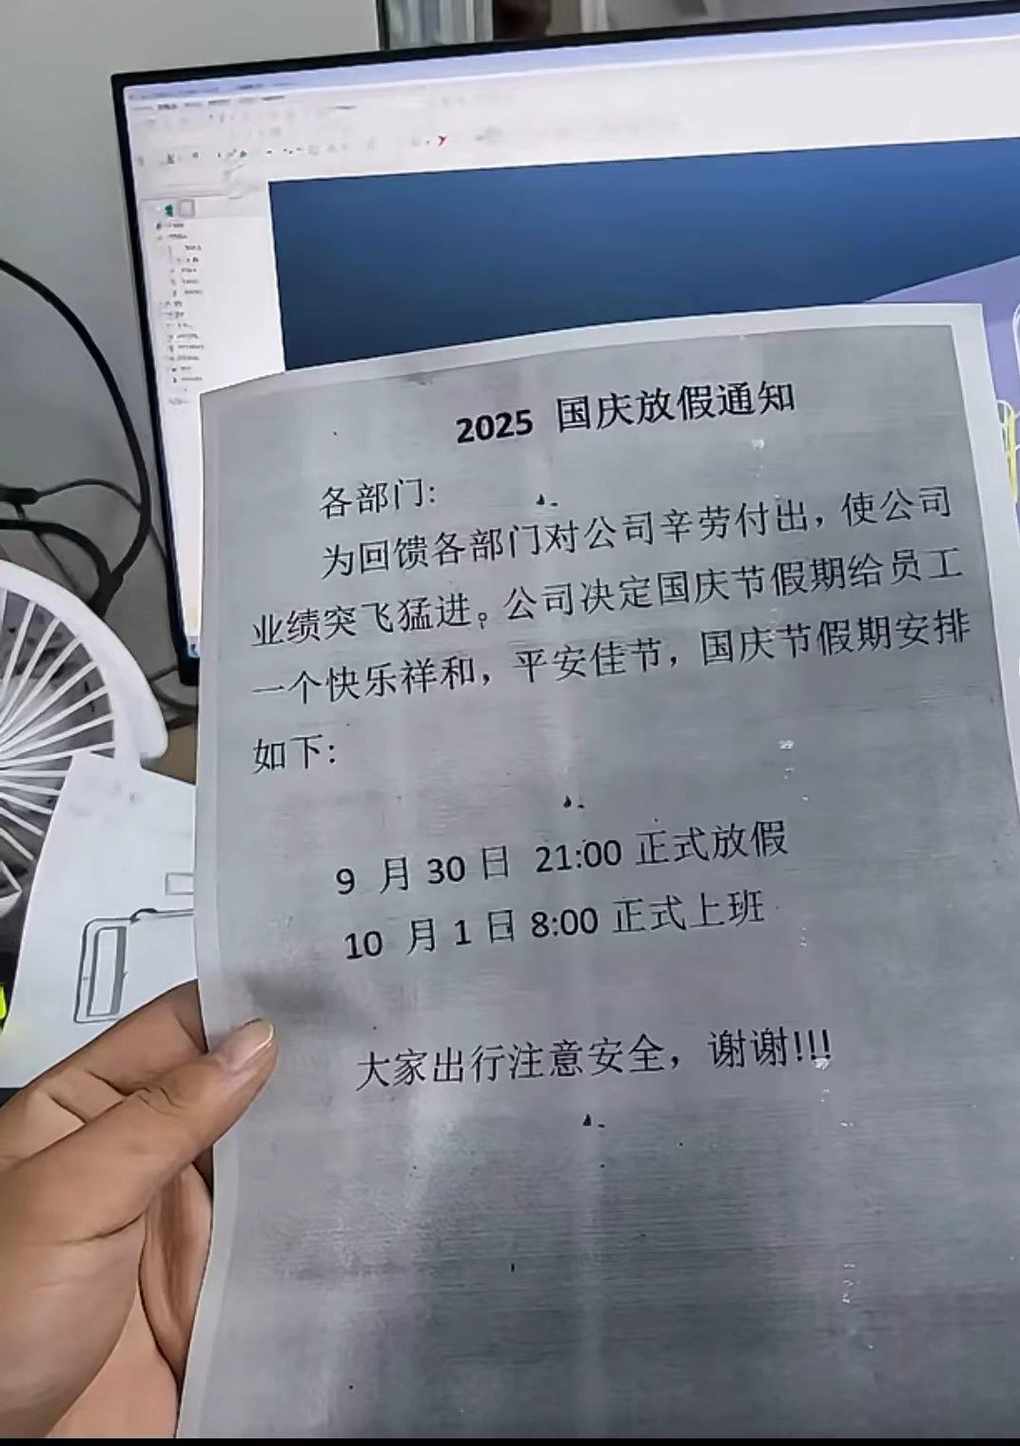 2025 国庆放假通知
各部门:
为回馈各部门对公司辛劳付出，使公司
业绩突飞猛进。公司决定国庆节假期给员工
一个快乐祥和，平安佳节，国庆节假期安排
如下:
9 月 30 日 21:00 正式放假
10 月 1 日 8:00 正式上班
大家出行注意安全，谢谢!!!